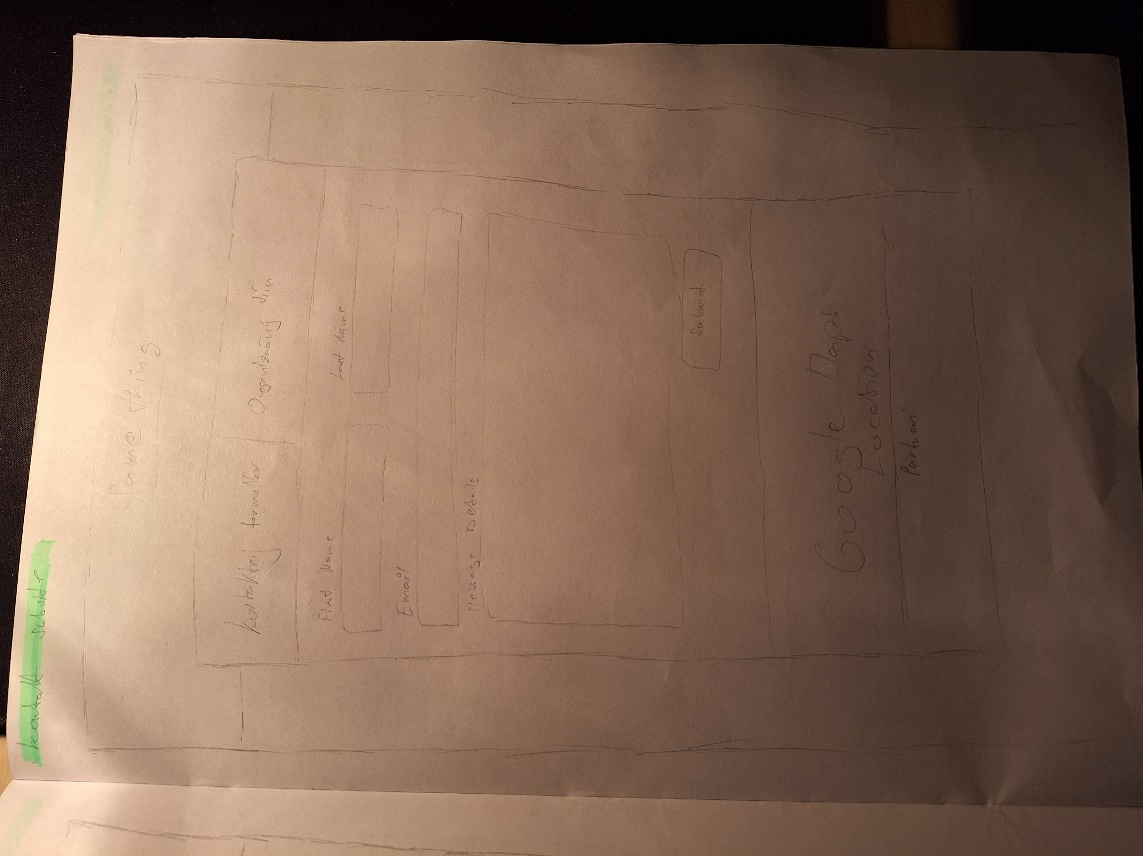 kontakt subsite
Same thing
Kontaktný formulár Organizačný tím
First Name Last Name
Email
Message Details
Submit
Google Maps
Location
Partneri